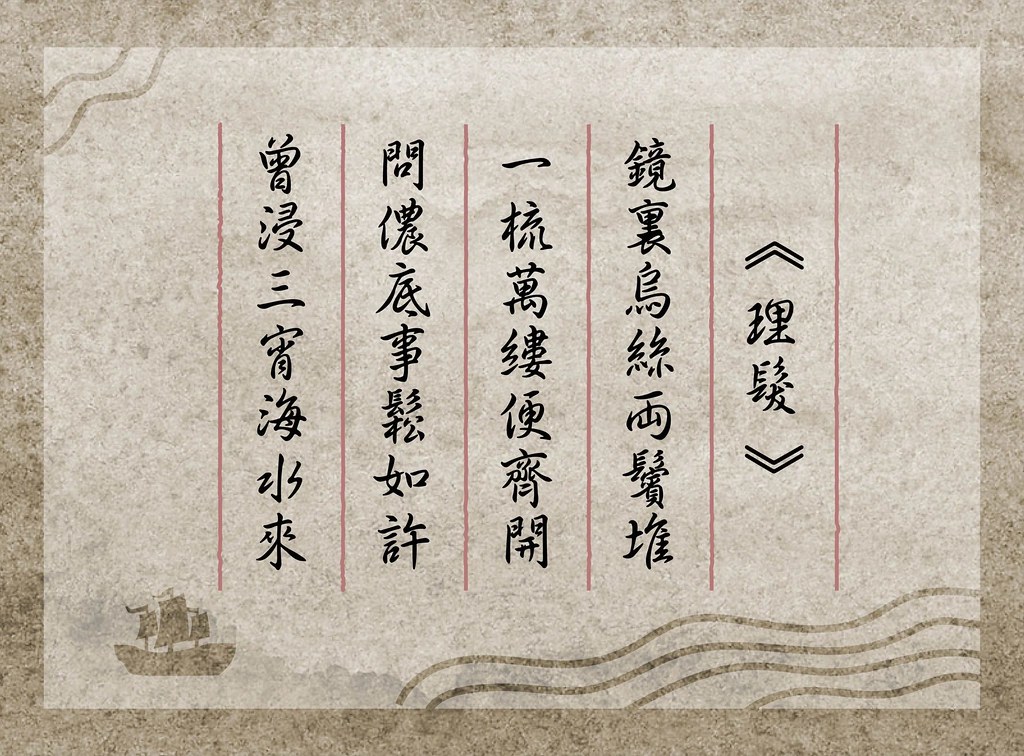 《理髮》
鏡裏烏絲兩鬢堆
一梳萬縷便齊開
問儂底事鬆如許
曾浸三宵海水來